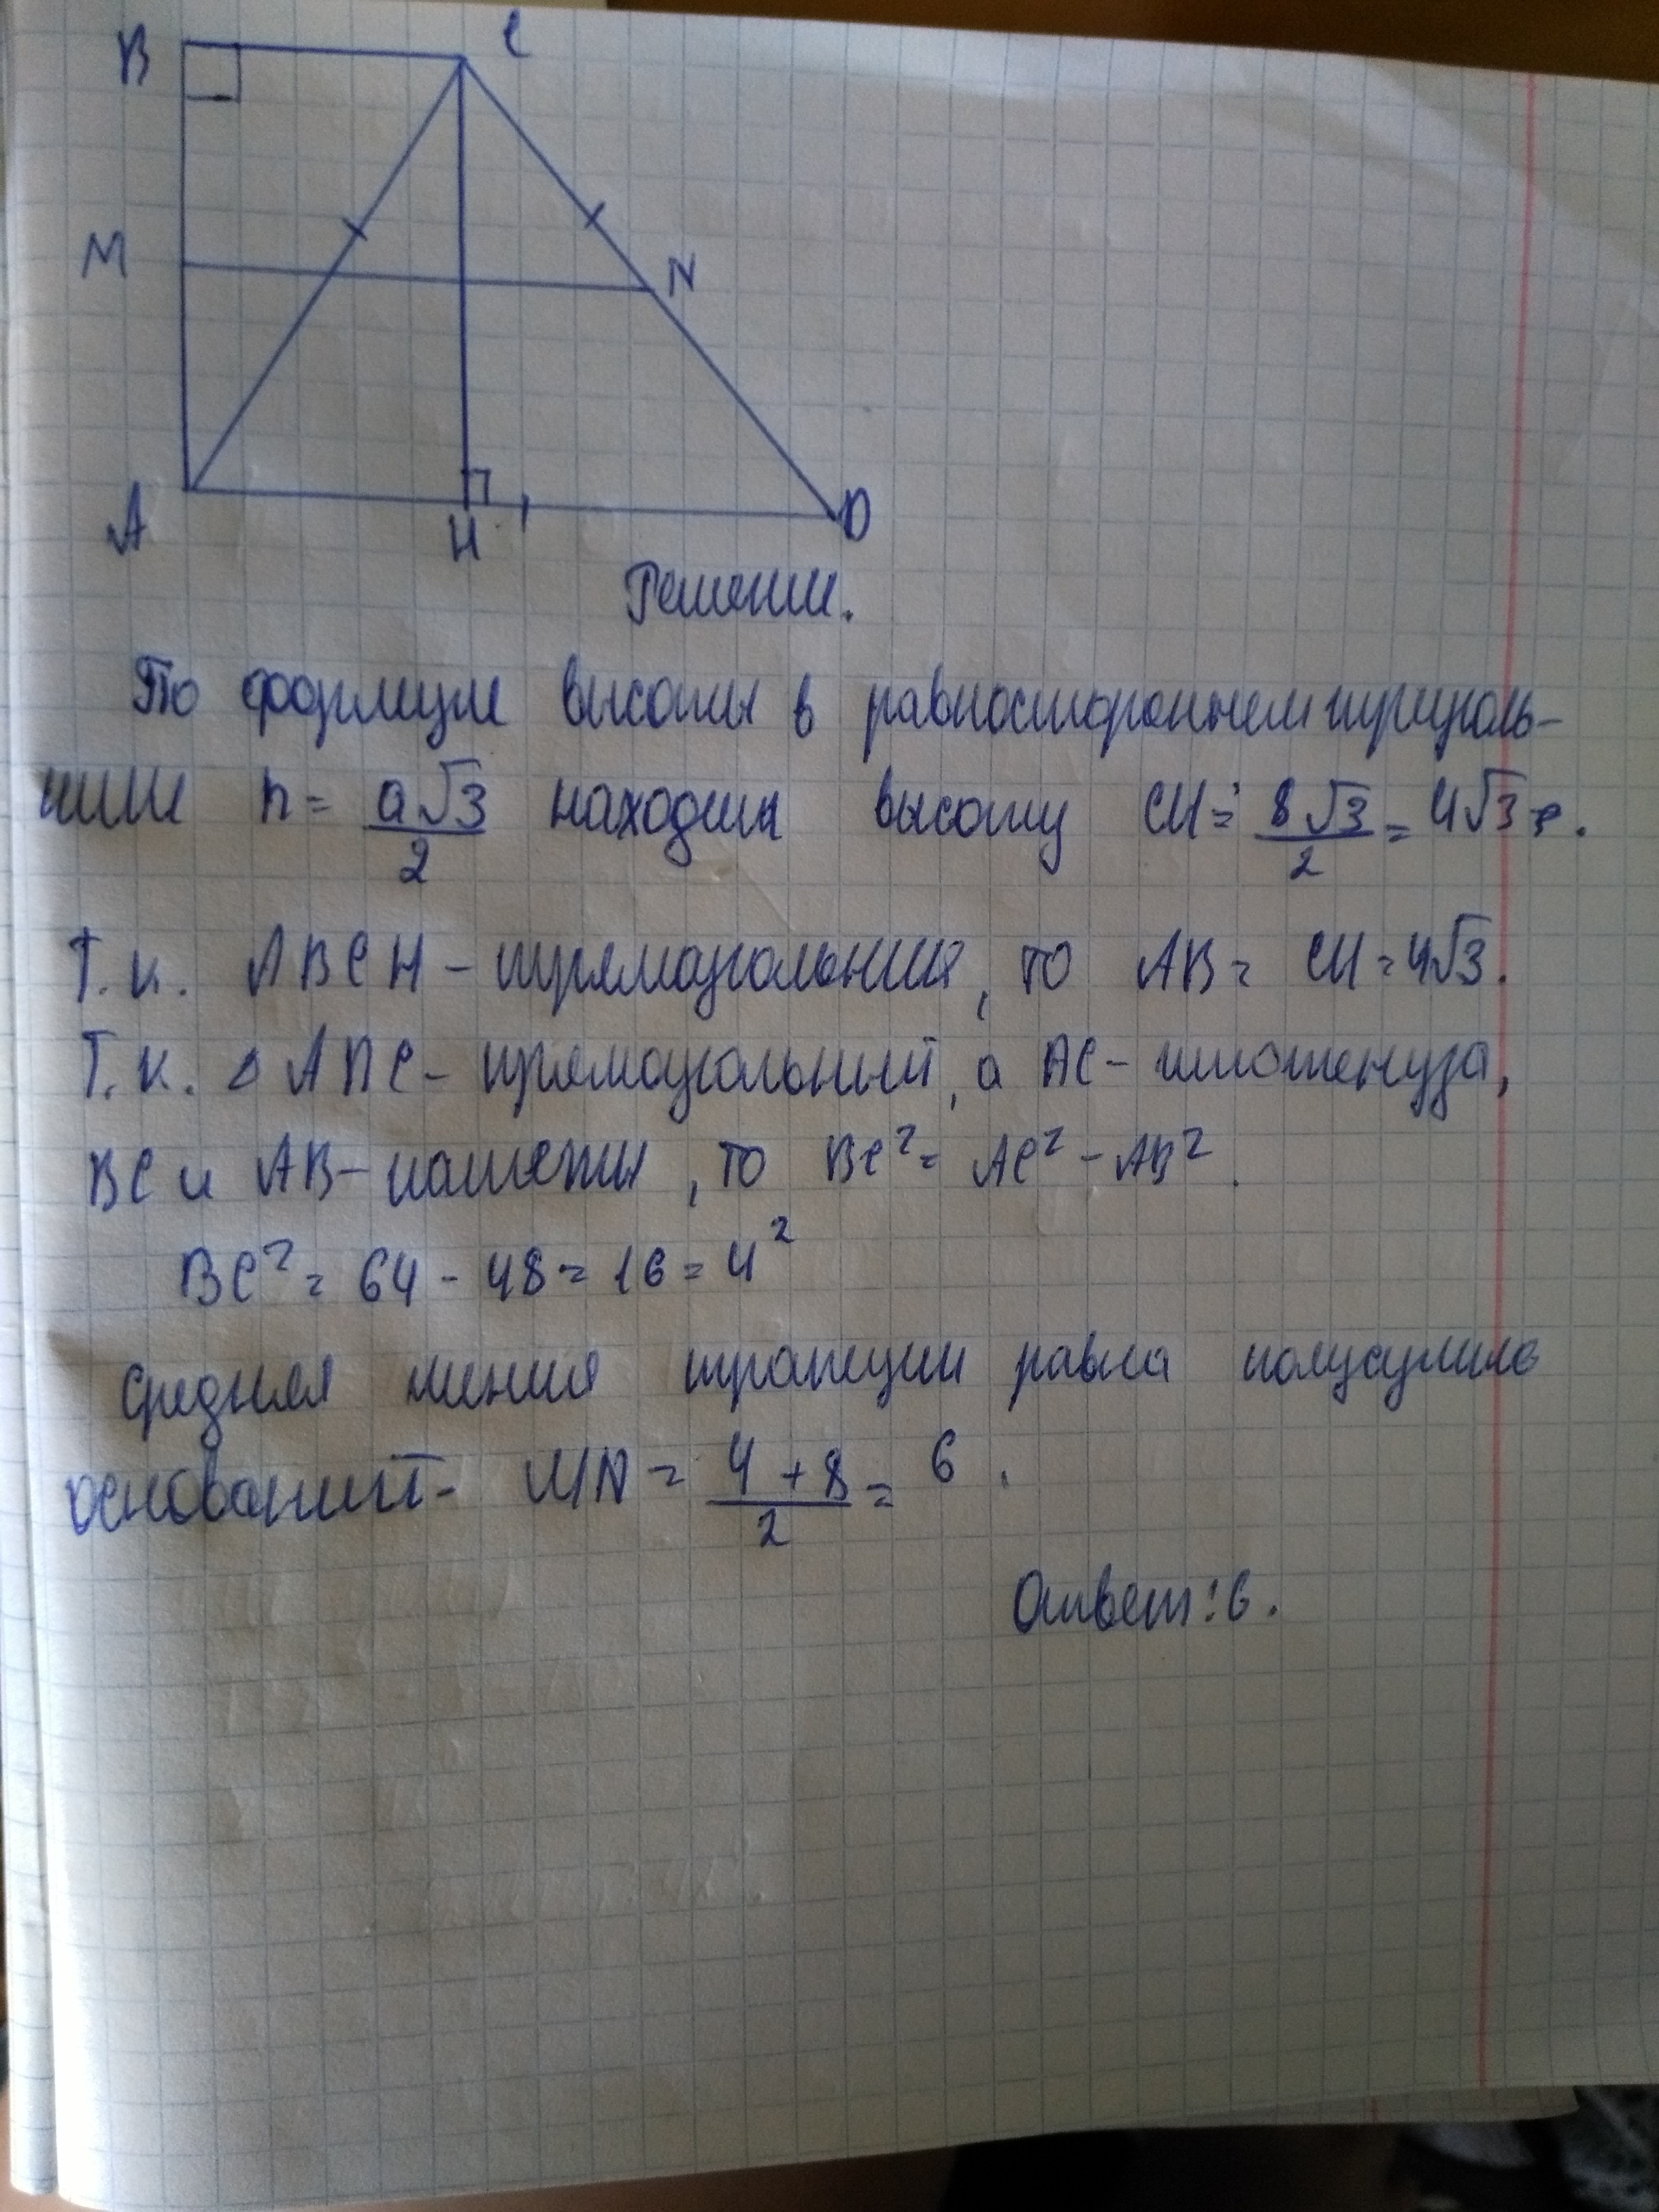 B C
M N
A H D
Решение.
По формуле высоты в равностороннем треуголь-
нике h = a√3/2 находим высоту CH = 8√3/2 = 4√3.
Т.к. ABCH – прямоугольник, то AB = CH = 4√3.
Т.к. △ ABC – прямоугольный, а AC – гипотенуза,
BC и AB – катеты, то BC² = AC² – AB².
BC² = 64 - 48 = 16 = 4²
Средняя линия трапеции равна полусумме
оснований - MN = 4 + 8/2 = 6.
Ответ: 6.